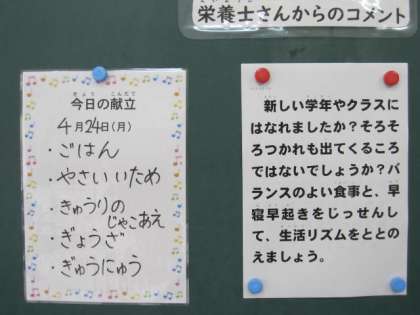 栄養士さんからのコメント
今日の献立
4月24日(月)
・ごはん
・やさいいため
・きゅうりの
じゃこあえ
・ぎょうざ
・ぎゅうにゅう
新しい学年やクラスに
はなれましたか？そろそ
ろつかれも出てくるころ
ではないでしょうか？バ
ランスのよい食事と、早
寝早起きをじっせんし
て、生活リズムをととの
えましょう。